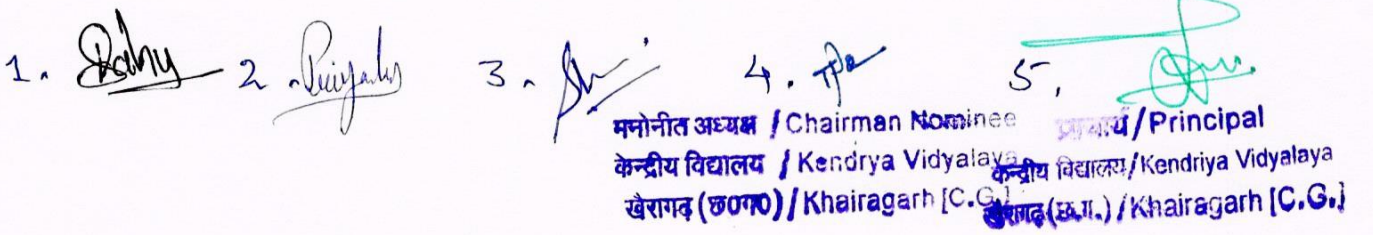 1. Sahu 2. Priyanka 3. 4. 5.
मनोनीत अध्यक्ष / Chairman Nominee
केन्द्रीय विद्यालय / Kendrya Vidyalaya
खैरागढ़ (छ०ग०) / Khairagarh [C.G.]
प्राचार्य / Principal
केन्द्रीय विद्यालय / Kendriya Vidyalaya
खैरागढ़ (छ.ग.) / Khairagarh [C.G.]